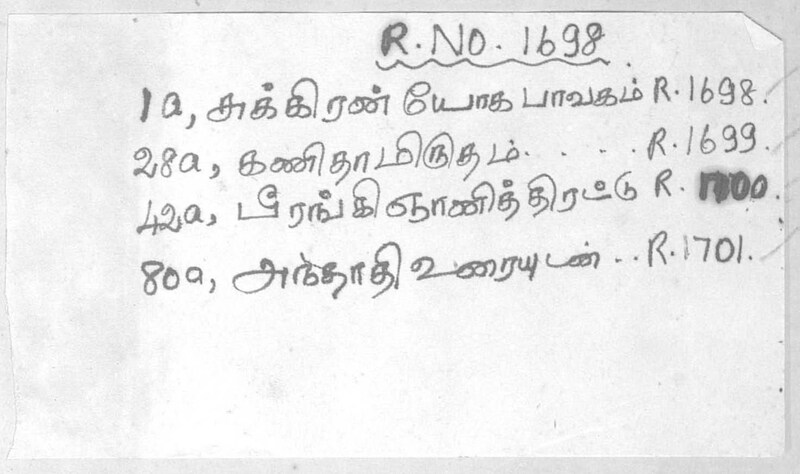 R. NO. 1698
1a, சுக்கிரன் யோக பாவகம் R. 1698.
28a, கணிதாமிருதம். . . . . R. 1699.
42a, பீரங்கி ஞானித்திரட்டு R. 1700.
80a, அந்தாதி உரையுடன் . . R. 1701.